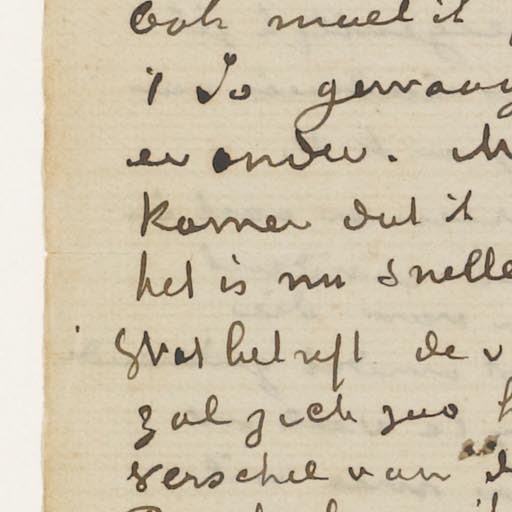 Ook moet ik
er onder. M
Komen dat ik
het is nu snelle
Wat betreft de v
zal zich zoo
verschil van d